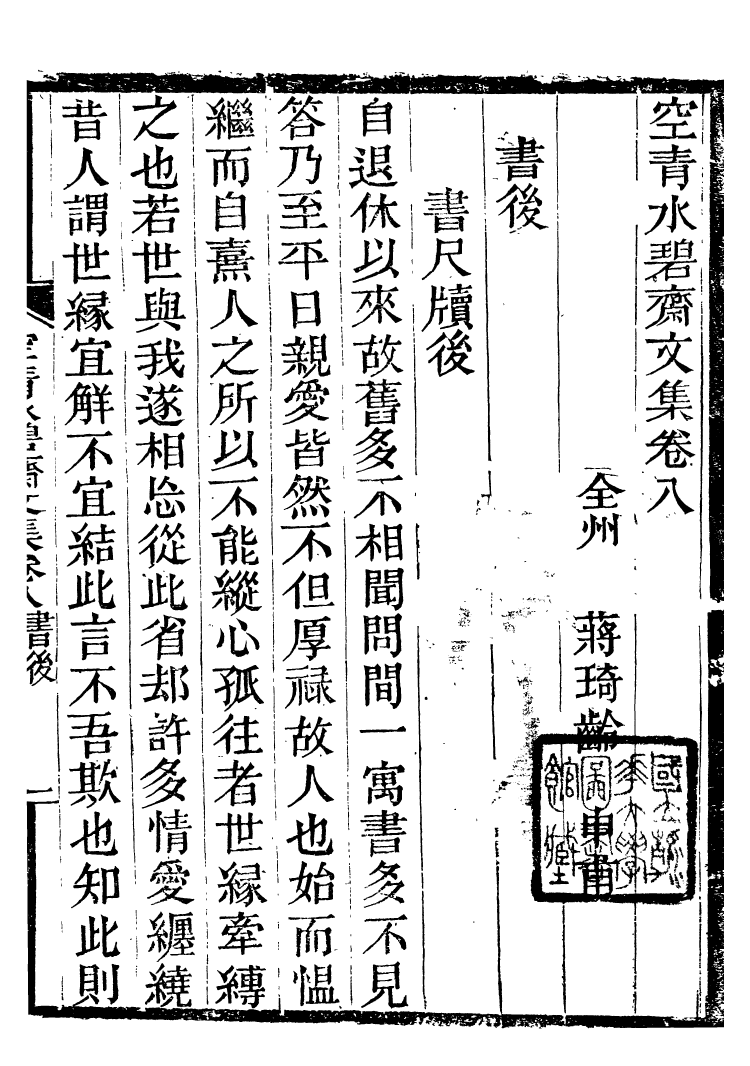 空青水碧齋文集卷八
全州　蔣琦齡　申甫
書後
書尺牘後
自退休以來故舊多不相聞問間一寓書多不見
答乃至平日親愛皆然不但厚祿故人也始而慍
繼而自熹人之所以不能縱心孤往者世緣牽縛
之也若世與我遂相忘從此省却許多情愛纏繞
昔人謂世緣宜解不宜結此言不吾欺也知此則
空青水碧齋文集卷八書後　一